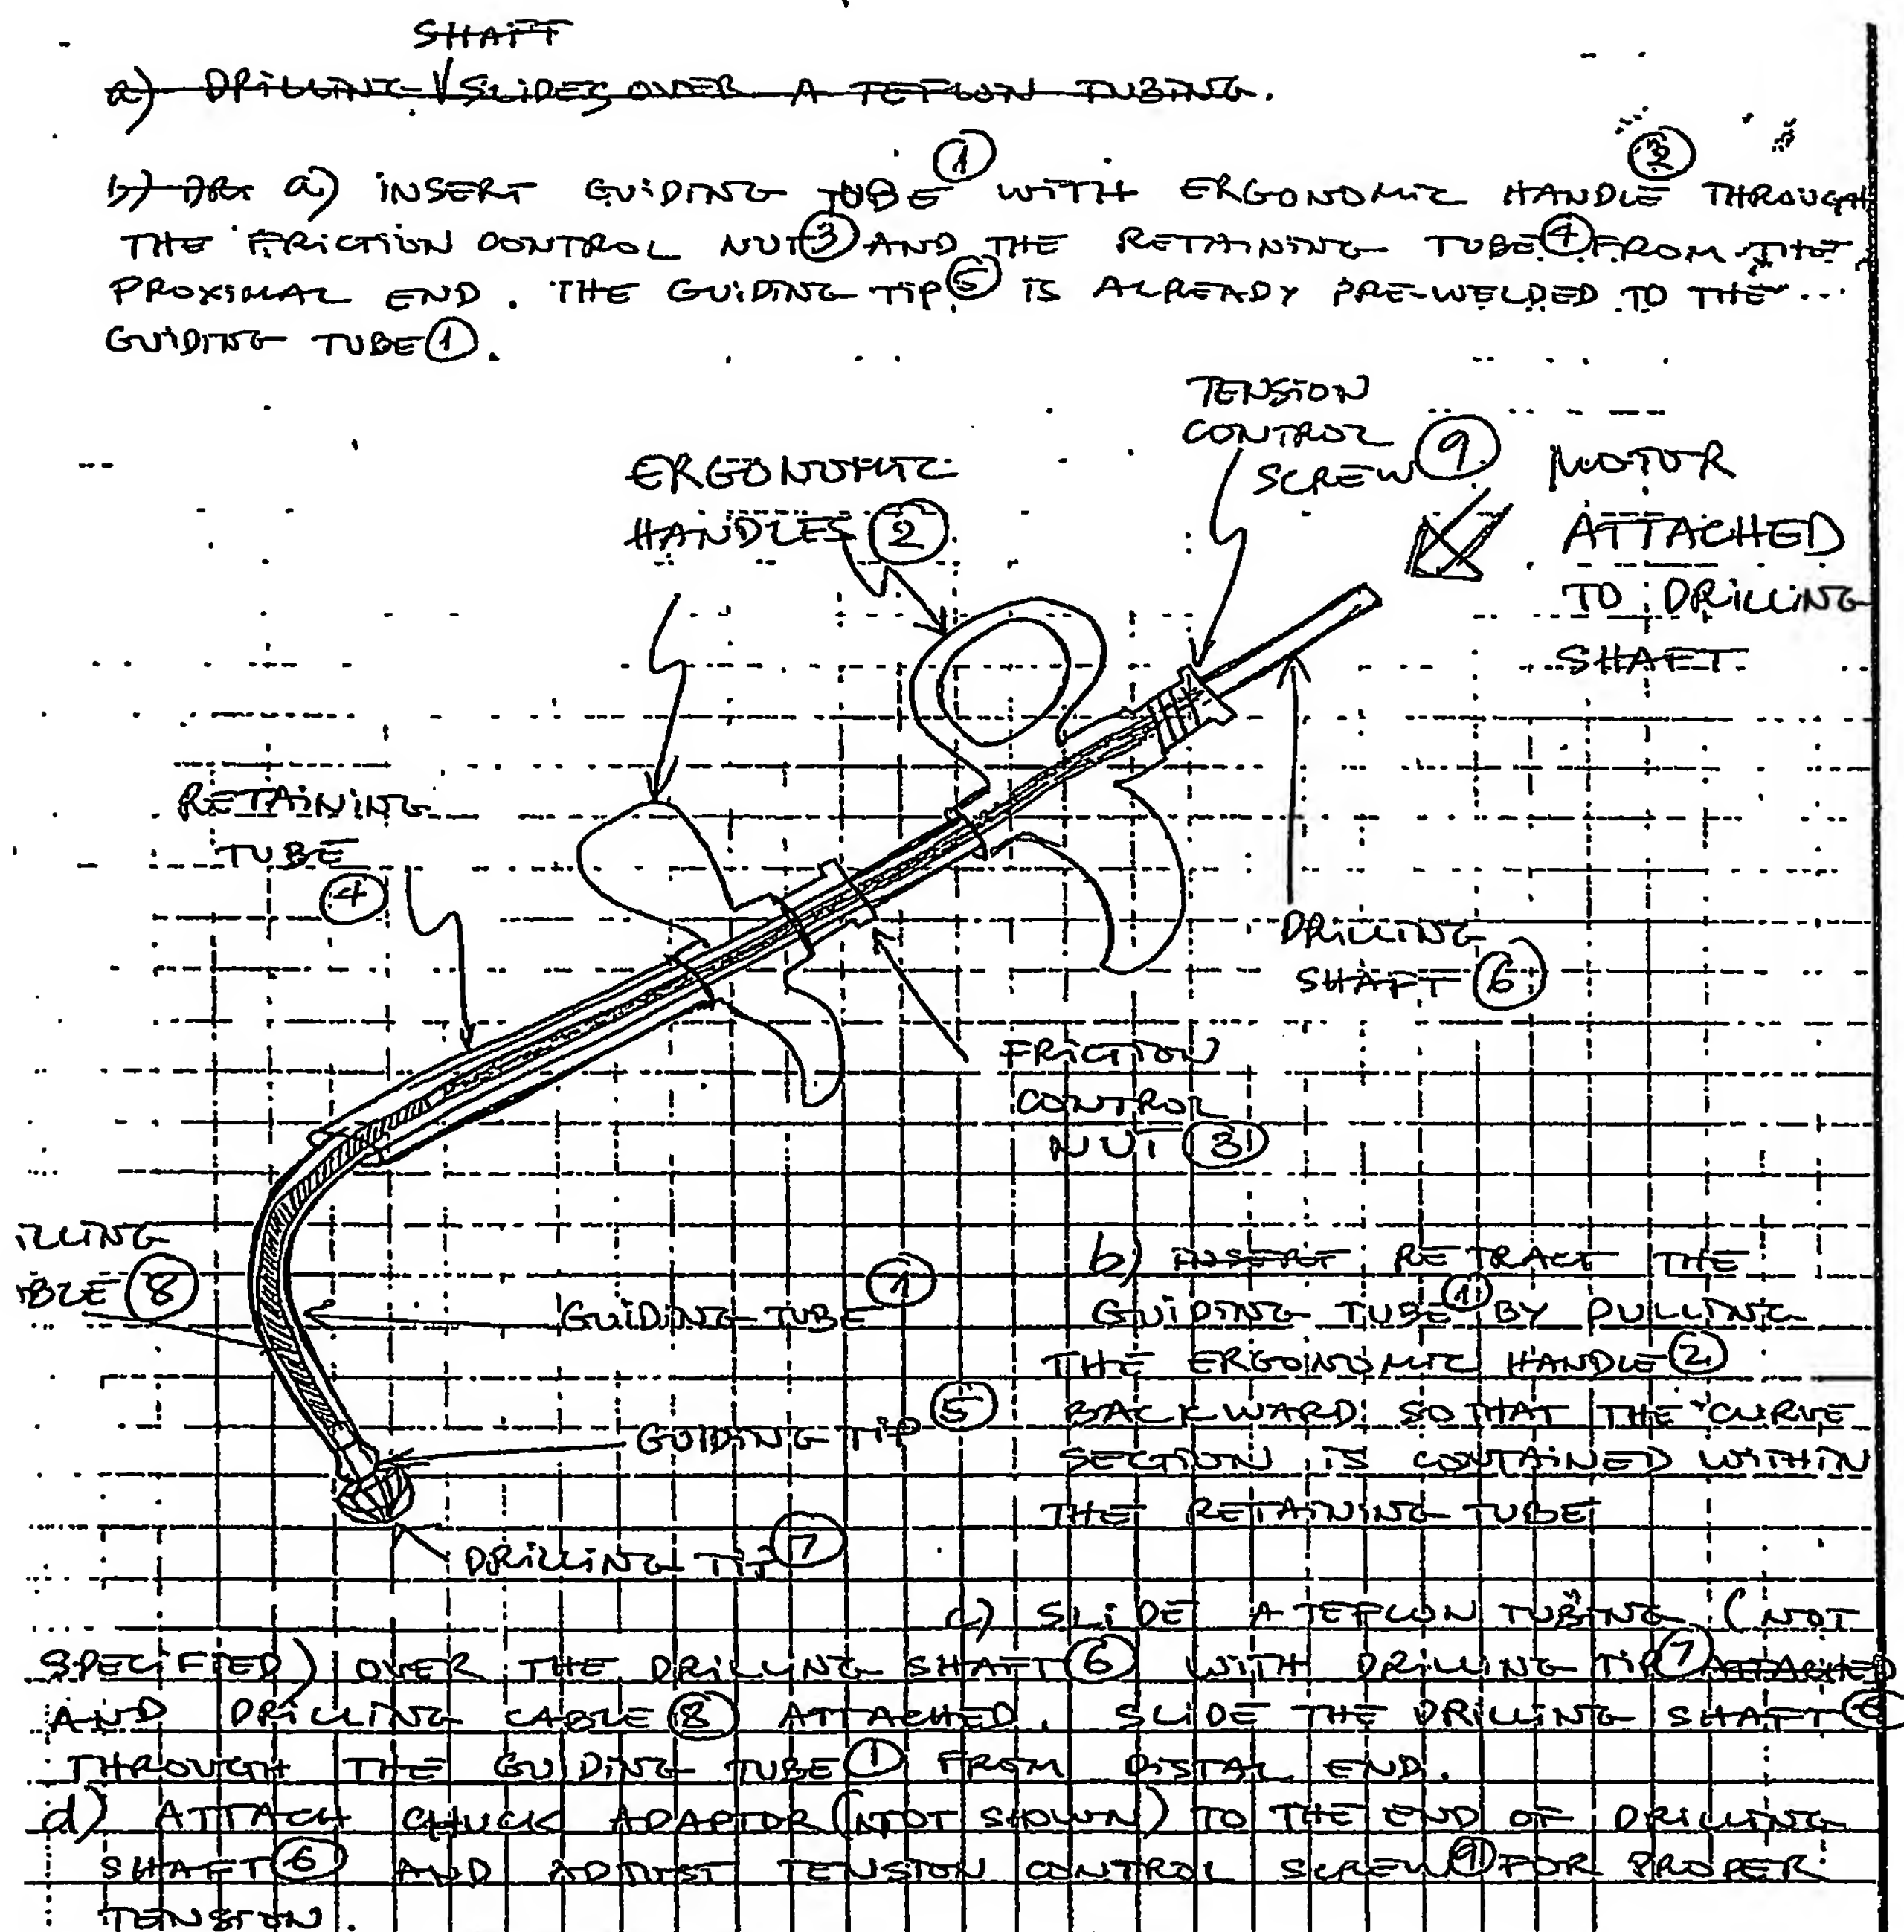 SHAFT
a) DRILLING SLIDES OVER A TEFLON TUBING.
b) a) INSERT GUIDING TUBE ① WITH ERGONOMIC HANDLE ② THROUGH
THE FRICTION CONTROL NUT ③ AND THE RETAINING TUBE ④ FROM THE
PROXIMAL END. THE GUIDING TIP ⑤ IS ALREADY PRE-WELDED TO THE
GUIDING TUBE ①.
TENSION
CONTROL
SCREW ⑨
MOTOR
ATTACHED
TO DRILLING
SHAFT
ERGONOMIC
HANDLES ②
RETAINING
TUBE
④
DRILLING
SHAFT ⑥
FRICTION
CONTROL
NUT ③
ILLING
ABLE ⑧
GUIDING TUBE ①
GUIDING TIP ⑤
DRILLING TIP ⑦
b) INSERT RETRACT THE
GUIDING TUBE ① BY PULLING
THE ERGONOMIC HANDLE ②
BACKWARD SO THAT THE CURVE
SECTION IS CONTAINED WITHIN
THE RETAINING TUBE
c) SLIDE A TEFLON TUBING (NOT
SPECIFIED) OVER THE DRILLING SHAFT ⑥ WITH DRILLING TIP ⑦ ATTACHED
AND DRILLING CABLE ⑧ ATTACHED. SLIDE THE DRILLING SHAFT ⑥
THROUGH THE GUIDING TUBE ① FROM DISTAL END.
d) ATTACH CHUCK ADAPTOR (NOT SHOWN) TO THE END OF DRILLING
SHAFT ⑥ AND ADJUST TENSION CONTROL SCREW ⑨ FOR PROPER
TENSION.